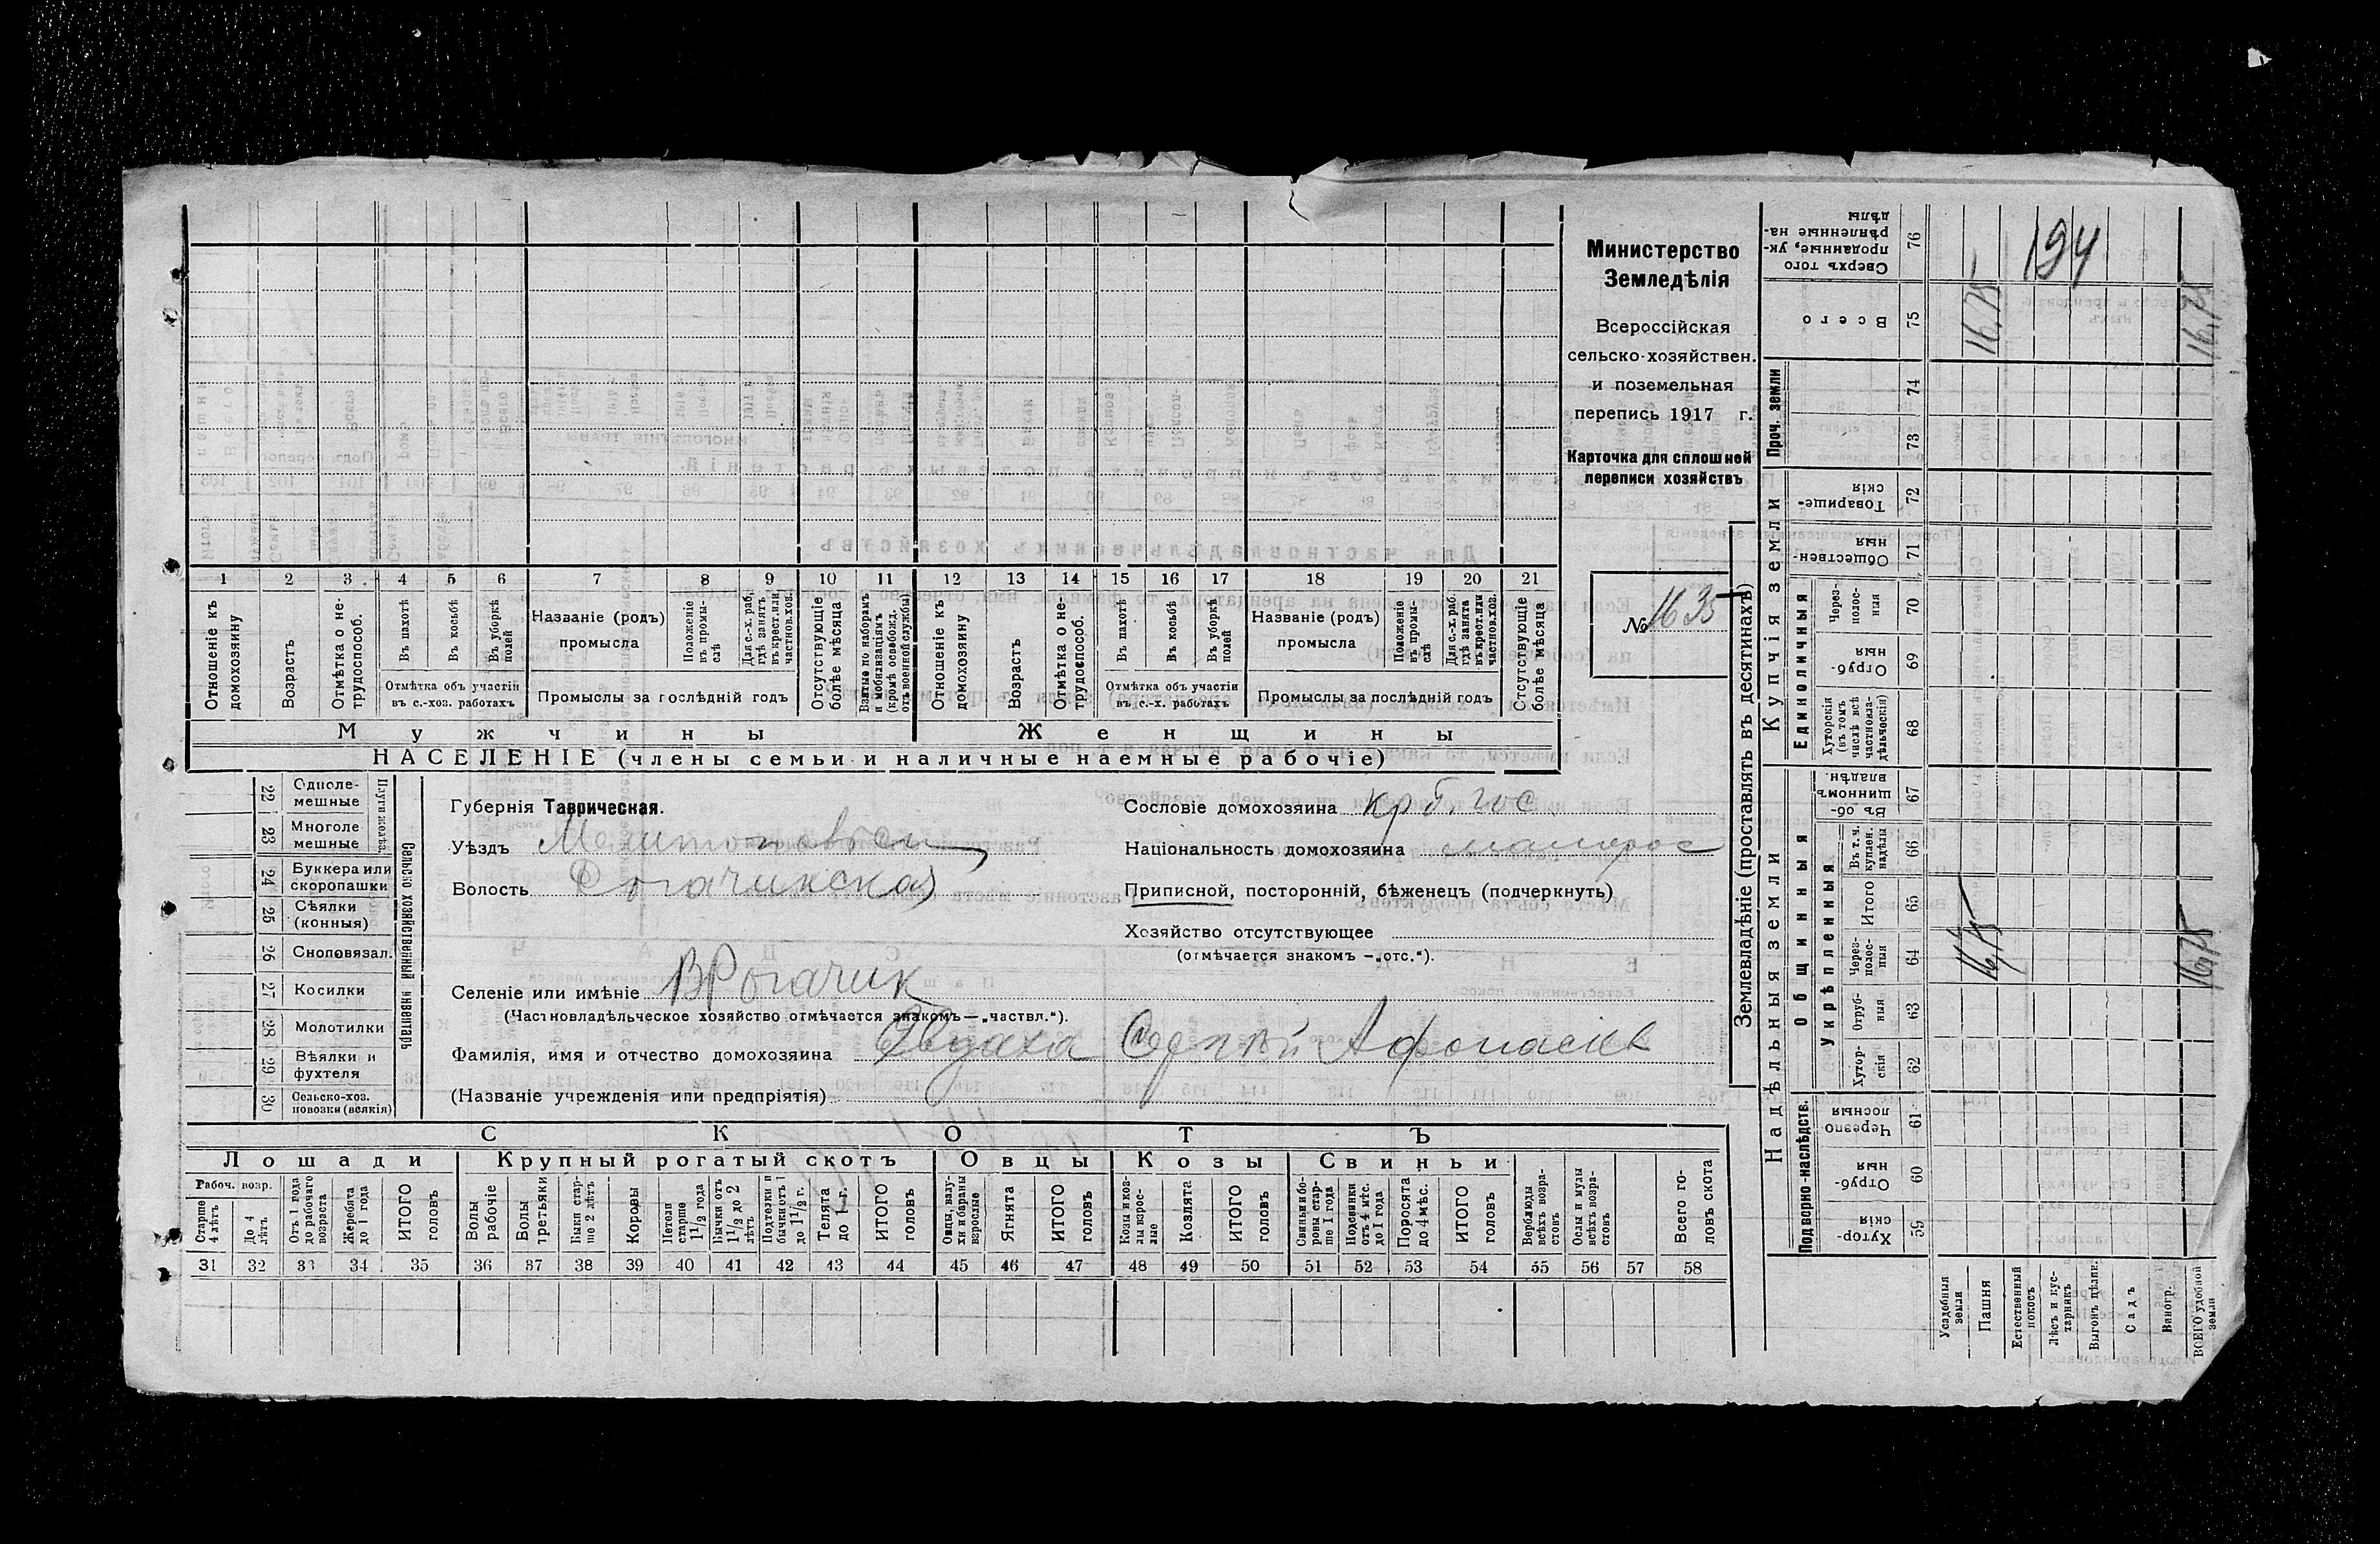 Министерство
Земледѣлія
Всероссійская
сельско-хозяйствен.
и поземельная
перепись 1917 г.
Карточка для сплошней
переписи хозяйствъ
№ 1635
1 2 3 4 5 6 7 8 9 10 11 12 13 14 15 16 17 18 19 20 21
Отношеніе къ домохозяину
Возрастъ
Отмѣтка о не-трудоспособ.
Въ пахотѣ
Въ косьбѣ
Въ уборкѣ полей
Отмѣтка объ участіи въ с.-хоз. работахъ
Названіе (родъ) промысла
Положеніе въ промы-слѣ
Для с.-х. раб. гдѣ занятъ въ крест. или частнов. хоз.
Промыслы за послѣдній годъ
Отсутствующіе болѣе мѣсяца
Взятые по наборамъ и мобилизаціямъ (кромѣ освобожд. отъ военной службы)
Отношеніе къ домохозяину
Возрастъ
Отмѣтка о не-трудоспособ.
Въ пахотѣ
Въ косьбѣ
Въ уборкѣ полей
Отмѣтка объ участіи въ с.-х. работахъ
Названіе (родъ) промысла
Положеніе въ промы-слѣ
Для с.-х. раб. гдѣ занята въ крест. или частнов. хоз.
Промыслы за послѣдній годъ
Отсутствующіе болѣе мѣсяца
Мужчины Женщины
НАСЕЛЕНІЕ (члены семьи и наличные наемные рабочіе)
22 Одноле-мешные
23 Многоле мешные
Плуги желѣз.
24 Буккера или скоропашки
25 Сѣялки (конныя)
26 Сноповязал.
27 Косилки
28 Молотилки
29 Вѣялки и фухтеля
30 Сельско-хоз. повозки (всякія)
Сельско хозяйственный инвентарь
Губернія Таврическая.
Уѣздъ
Волость Рогачикская
Селеніе или имѣніе ВРогачик
(Частновладѣльческое хозяйство отмѣчается знакомъ—„частвл.“).
Фамилія, имя и отчество домохозяина Сергѣй Афонасіев
(Названіе учрежденія или предпріятія)
Сословіе домохозяина
Національность домохозяина малорос
Приписной, посторонній, бѣженецъ (подчеркнуть)
Хозяйство отсутствующее
(отмѣчается знакомъ —„отс.“).
СКОТЪ
Лошади Крупный рогатый скотъ Овцы Козы Свиньи
Рабоч. возр.
Старше 4 лѣтъ
До 4 лѣтъ
Отъ 1 года до рабочаго возраста
Жеребята до 1 года
ИТОГО головъ
Волы рабочіе
Волы третьяки
Быки стар-ше 2 лѣтъ
Коровы
Нетели старше 1 1/2 года
Бычки отъ 1 1/2 до 2 лѣтъ
Подтелки и бычки отъ 1 до 1 1/2 г.
Телята до 1 г.
ИТОГО головъ
Овцы, валу-хи и бараны взрослые
Ягнята
ИТОГО головъ
Козы и коз-лы взрос-лые
Козлята
ИТОГО головъ
Свиньи и бо-ровы стар-ше 1 года
Подсвинки отъ 4 мѣс. до 1 года
Поросята до 4 мѣс.
ИТОГО головъ
Верблюды всѣхъ возра-стовъ
Ослы и мулы всѣхъ возра-стовъ
Всего го-ловъ скота
31 32 33 34 35 36 37 38 39 40 41 42 43 44 45 46 47 48 49 50 51 52 53 54 55 56 57 58
Землевладѣніе (проставлять въ десятинахъ)
Надѣльныя земли
Купчія земли
Проч. земли
Подворно-наслѣдств.
Общинныя
Укрѣпленныя
Единоличныя
Хутор-скія 59
Отруб-ныя 60
Черезпо лосныя 61
Хутор-скія 62
Отруб-ныя 63
Черезполос-ныя 64
Итого 65
Въ т. ч. куплен. надѣлы 66
Въ об-щинномъ владѣн. 67
Хуторскія (въ томъ числѣ всѣ частновла-дѣльческія) 68
Отруб-ныя 69
Через-полос-ныя 70
Обществен-ныя 71
Товарище-скія 72
73
74
Всего 75
Сверхъ того проданные, ук-рѣпленные на-дѣлы 76
Усадебныя земли
Пашня
Естественный покосъ
Лѣсъ и кус-тарникъ
Выгонъ цѣлин.
Садъ
Виногр.
ВСЕГО удобной земли
16,75
16,75
16,75
16,75
194